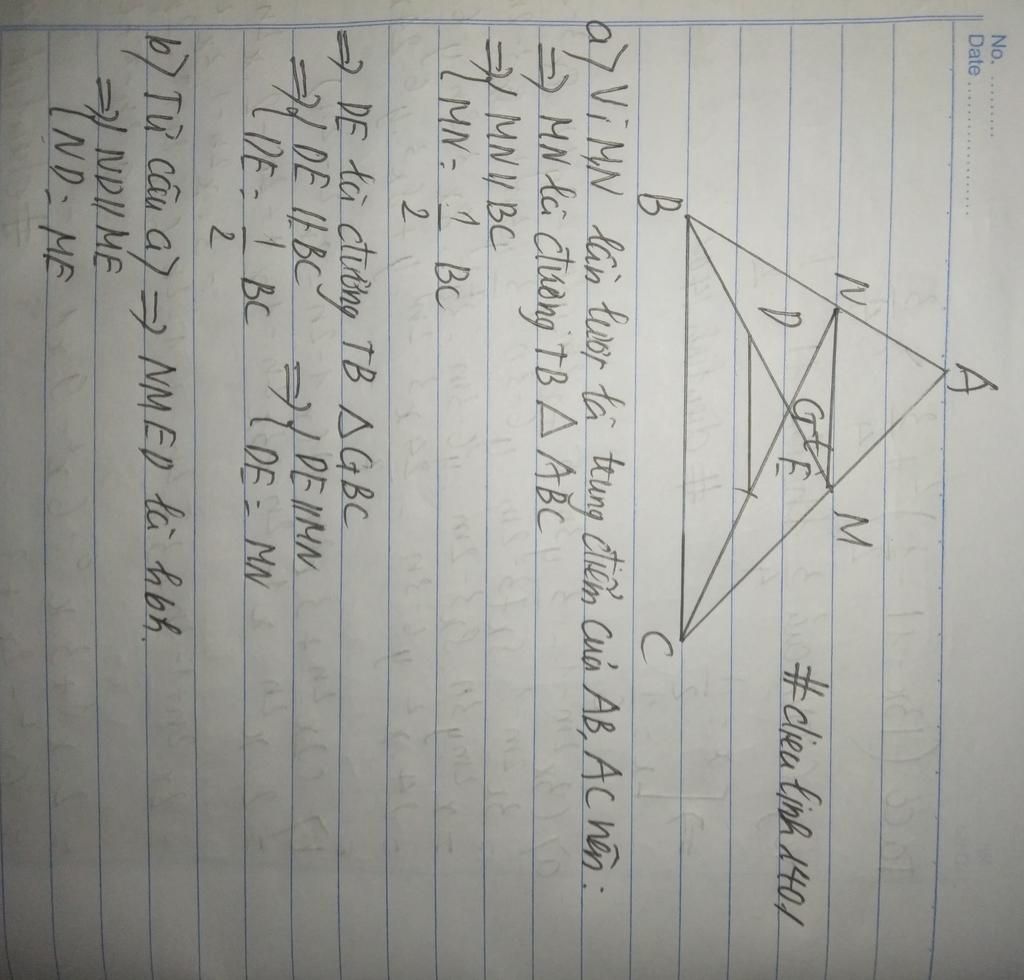 No. ..........
Date ....................
A
N
M
D
G
E
B
C
#dieulinh1401
a) Vì M,N lần lượt là trung điểm của AB, AC nên:
=> MN là đường TB △ ABC
=> { MN // BC
MN = 1/2 BC
=> DE là đường TB △GBC
=> { DE // BC => { DE // MN
DE = 1/2 BC => { DE = MN
b) Từ câu a) => NMED là hbh.
=> { ND // ME
ND = ME